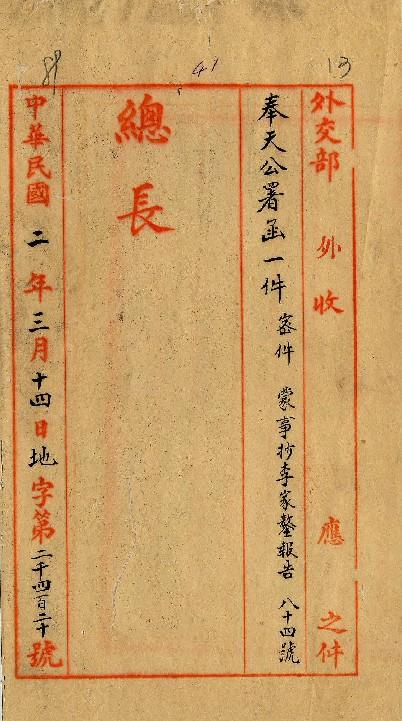 13
41
外交部 外收 應 之件
奉天公署函一件 密件 蒙事抄李家鏊報告 八十四號
總長
中華民國二年三月十四日地字第二千四百二十號